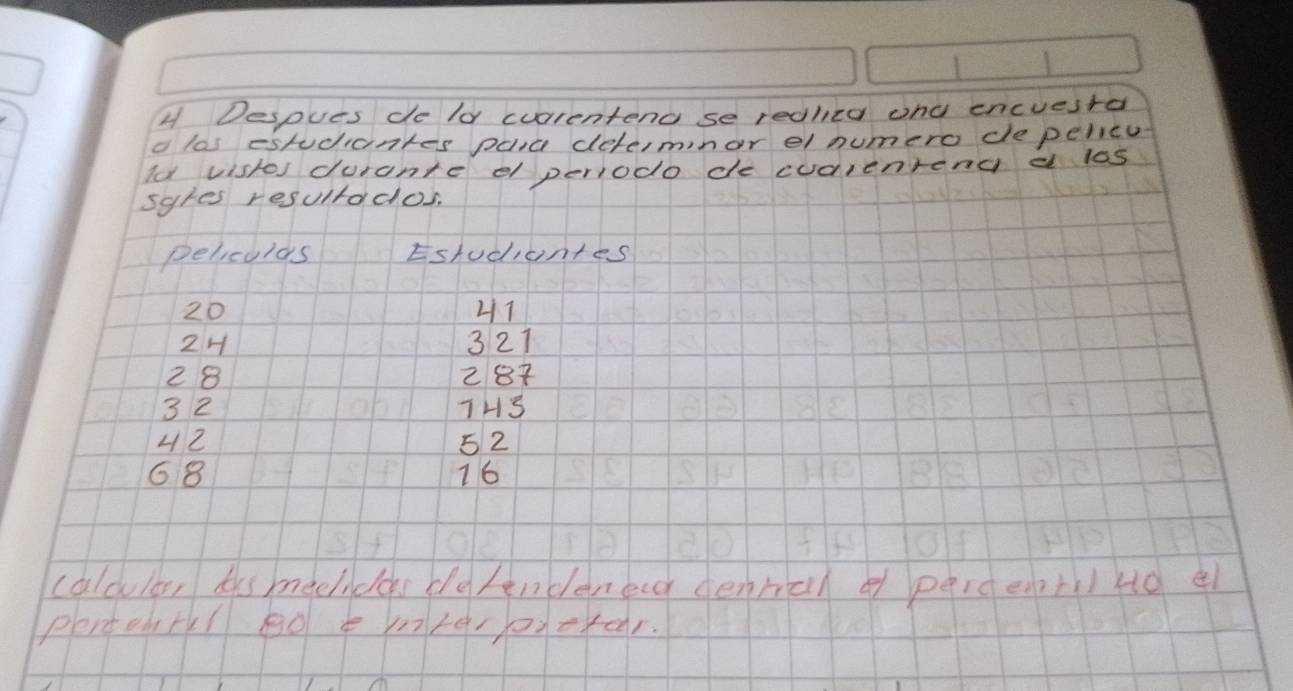 4 Despues de la cuarentena se realiza una encuesta
a las estudiantes para determinar el numero de pelicu-
la vistes durante el periodo de cuarentena a los
sgtes resultados.
peliculas Estudiantes
20 41
24 321
28 287
32 143
42 52
68 16
calcular las medidas de tendencia central el percentil 40 el
percentil 80 e interpretar.